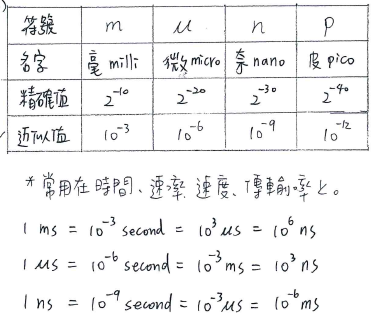 符號 m μ n p
名字 毫 milli 微 micro 奈 nano 皮 pico
精確值 2⁻¹⁰ 2⁻²⁰ 2⁻³⁰ 2⁻⁴⁰
近似值 10⁻³ 10⁻⁶ 10⁻⁹ 10⁻¹²
*常用在時間、速率、速度、傳輸率上。
1 ms = 10⁻³ second = 10³ μs = 10⁶ ns
1 μs = 10⁻⁶ second = 10⁻³ ms = 10³ ns
1 ns = 10⁻⁹ second = 10⁻³ μs = 10⁻⁶ ms